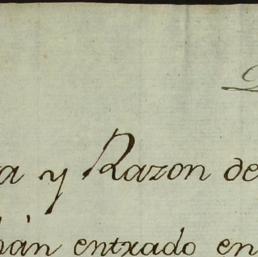 y Razon de
hán entrado en